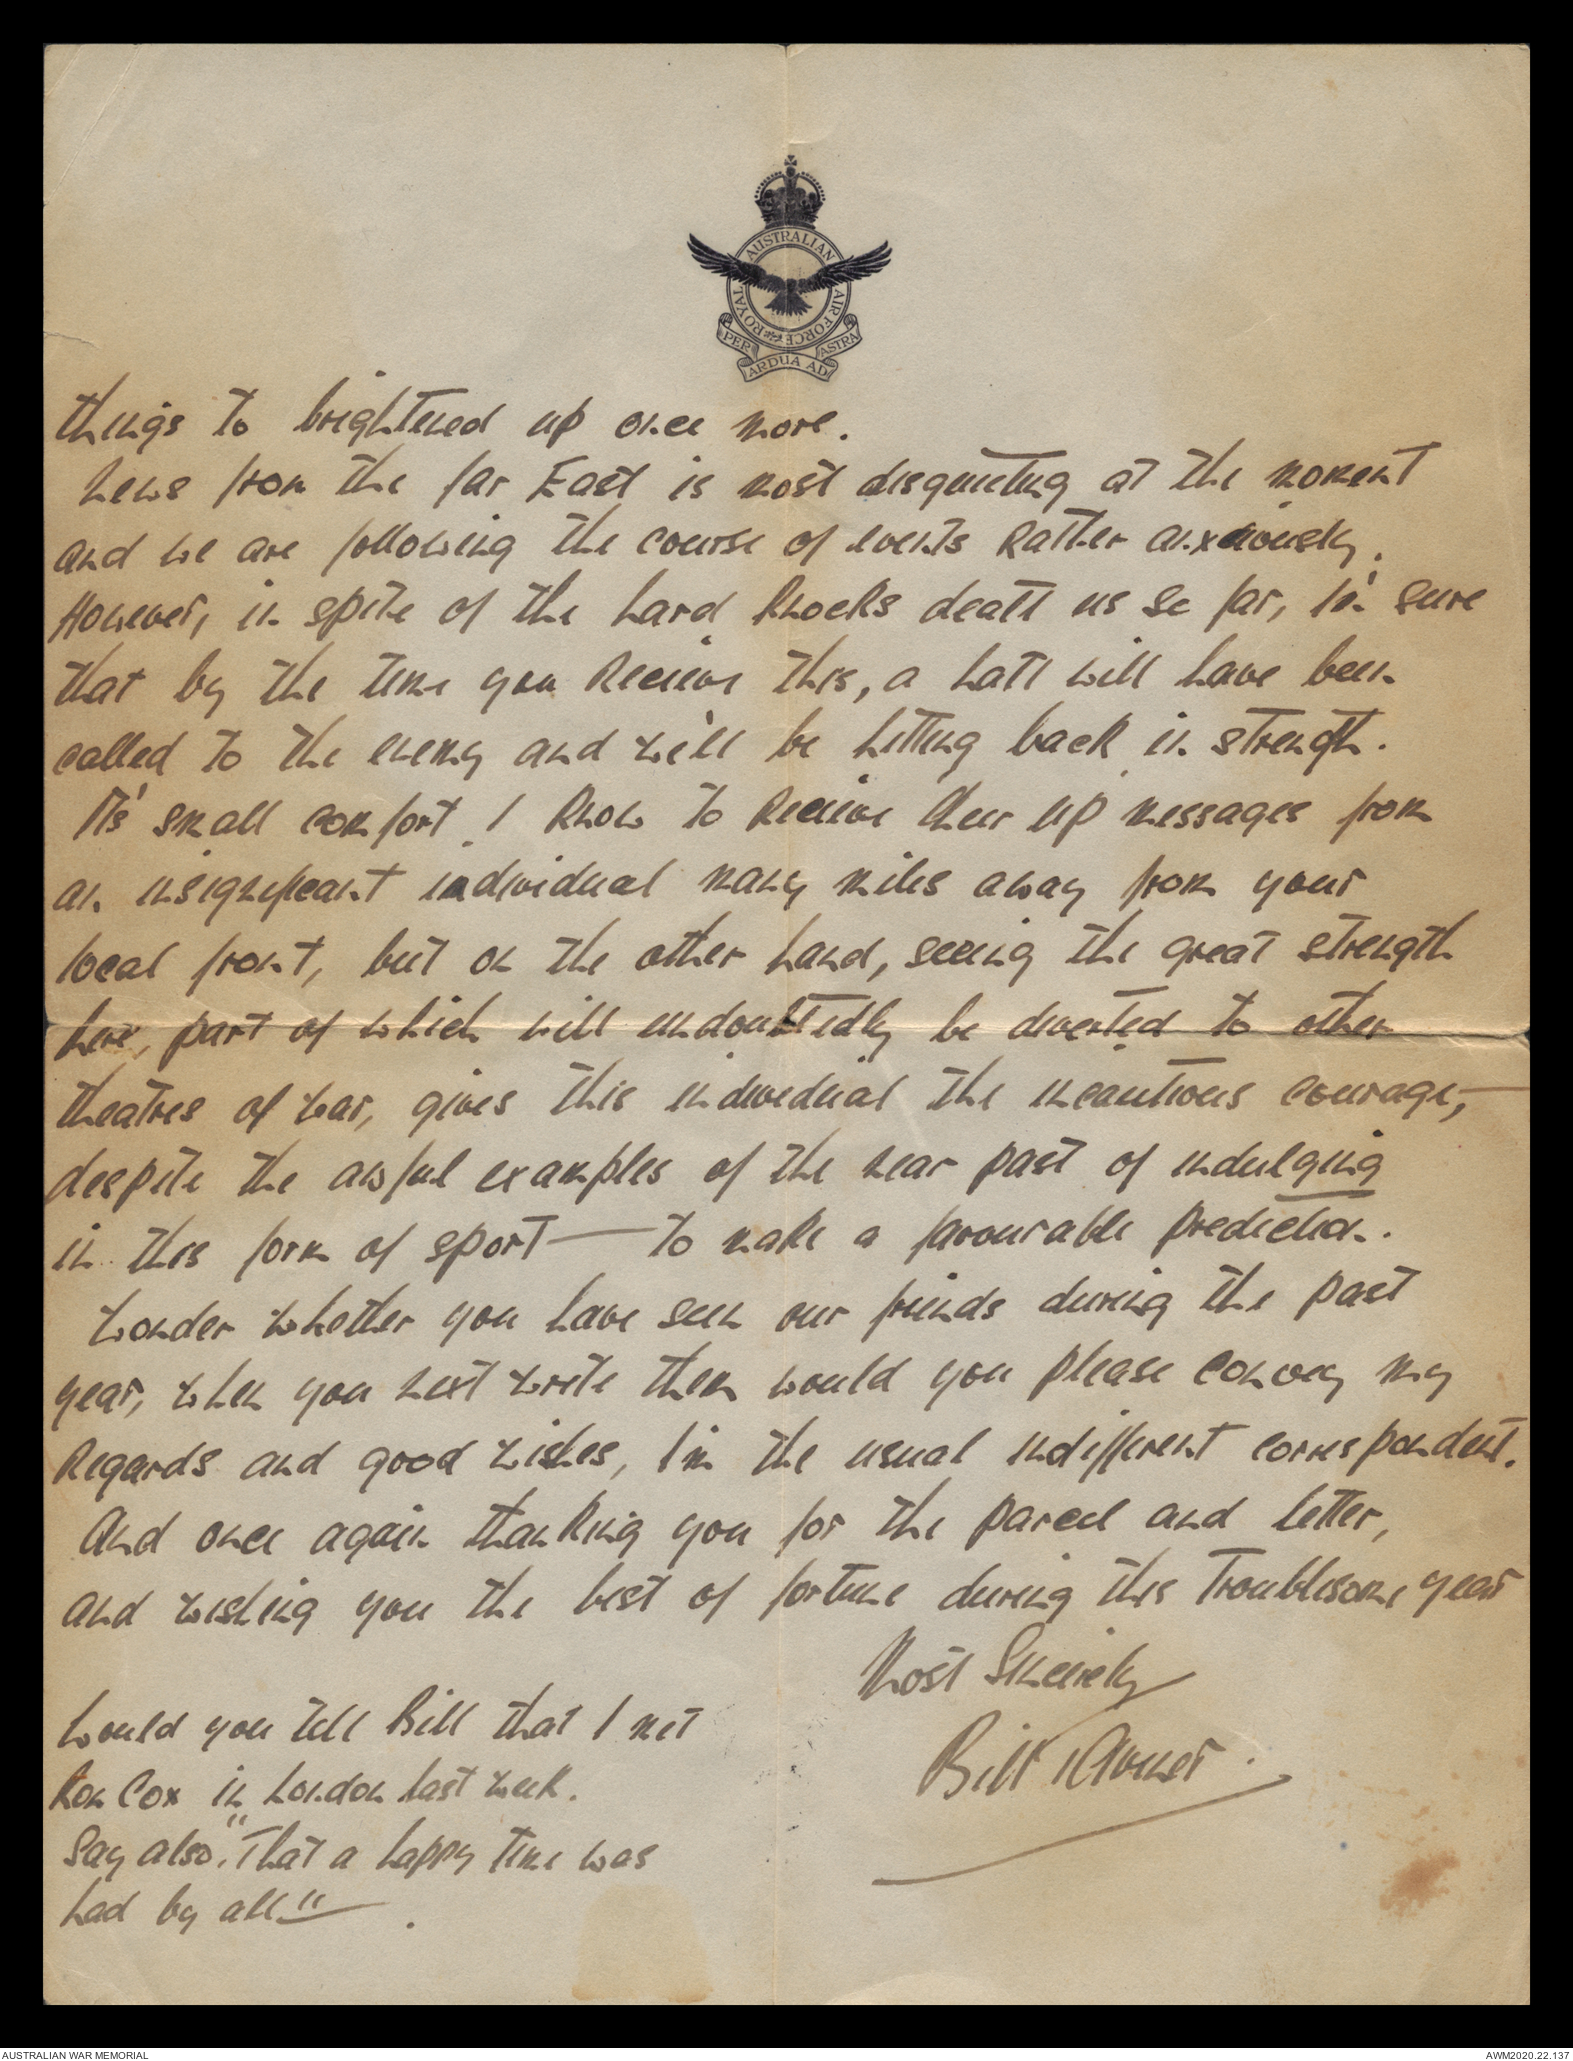 ROYAL AUSTRALIAN AIR FORCE
PER ARDUA AD ASTRA
things to brightened up once more.
News from the far East is most disquieting at the moment
and we are following the course of events rather anxiously.
However, in spite of the hard knocks dealt us so far, I'm sure
that by the time you recieve this, a halt will have been
called to the enemy and we'll be hitting back in strength.
It's small comfort I know to recieve cheer up messages from
an insignificant individual many miles away from your
local front, but on the other hand, seeing the great strength
here, part of which will undoubtedly be diverted to other
theatres of war, gives this individual the incautious courage,—
despite the awful examples of the near past of indulging
in this form of sport — to make a favourable prediction.
Wonder whether you have seen our friends during the past
year, when you next write them would you please convey my
regards and good wishes, I'm the usual indifferent correspondent.
And once again thanking you for the parcel and letter,
and wishing you the best of fortune during this troublesome year
Most Sincerely
Bill
Would you tell Bill that I met
Ron Cox in London last week.
Say also. "That a happy time was
had by all" — .
AUSTRALIAN WAR MEMORIAL
AWM2020.22.137